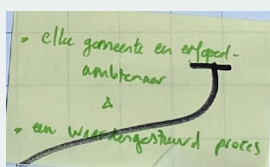 • elke gemeente en erfgoed-
ambtenaar
&
• een waardengestuurd proces